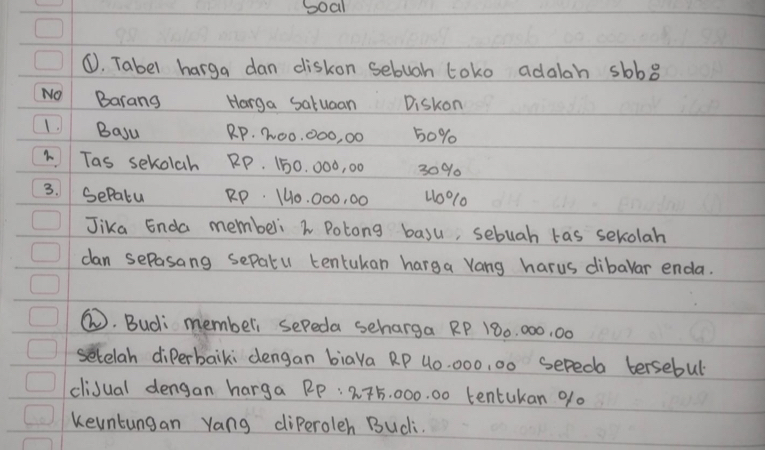 Soal
①. Tabel harga dan diskon sebuah toko adalah sbb:
No Barang Harga Satuaan Diskon
1. Baju RP. 200.000,00 50%
2. Tas sekolah RP. 150.000,00 30%
3. Sepatu RP. 140.000,00 40%
Jika Enda membeli 2 Potong baju, sebuah tas sekolah
dan sepasang sepatu tentukan harga yang harus dibayar enda.
②. Budi memberi sepeda seharga RP 180.000.00
setelah diperbaiki dengan biaya RP 40.000,00 sepeda tersebut
dijual dengan harga RP: 275.000.00 tentukan %
keuntungan yang diperoleh Budi.